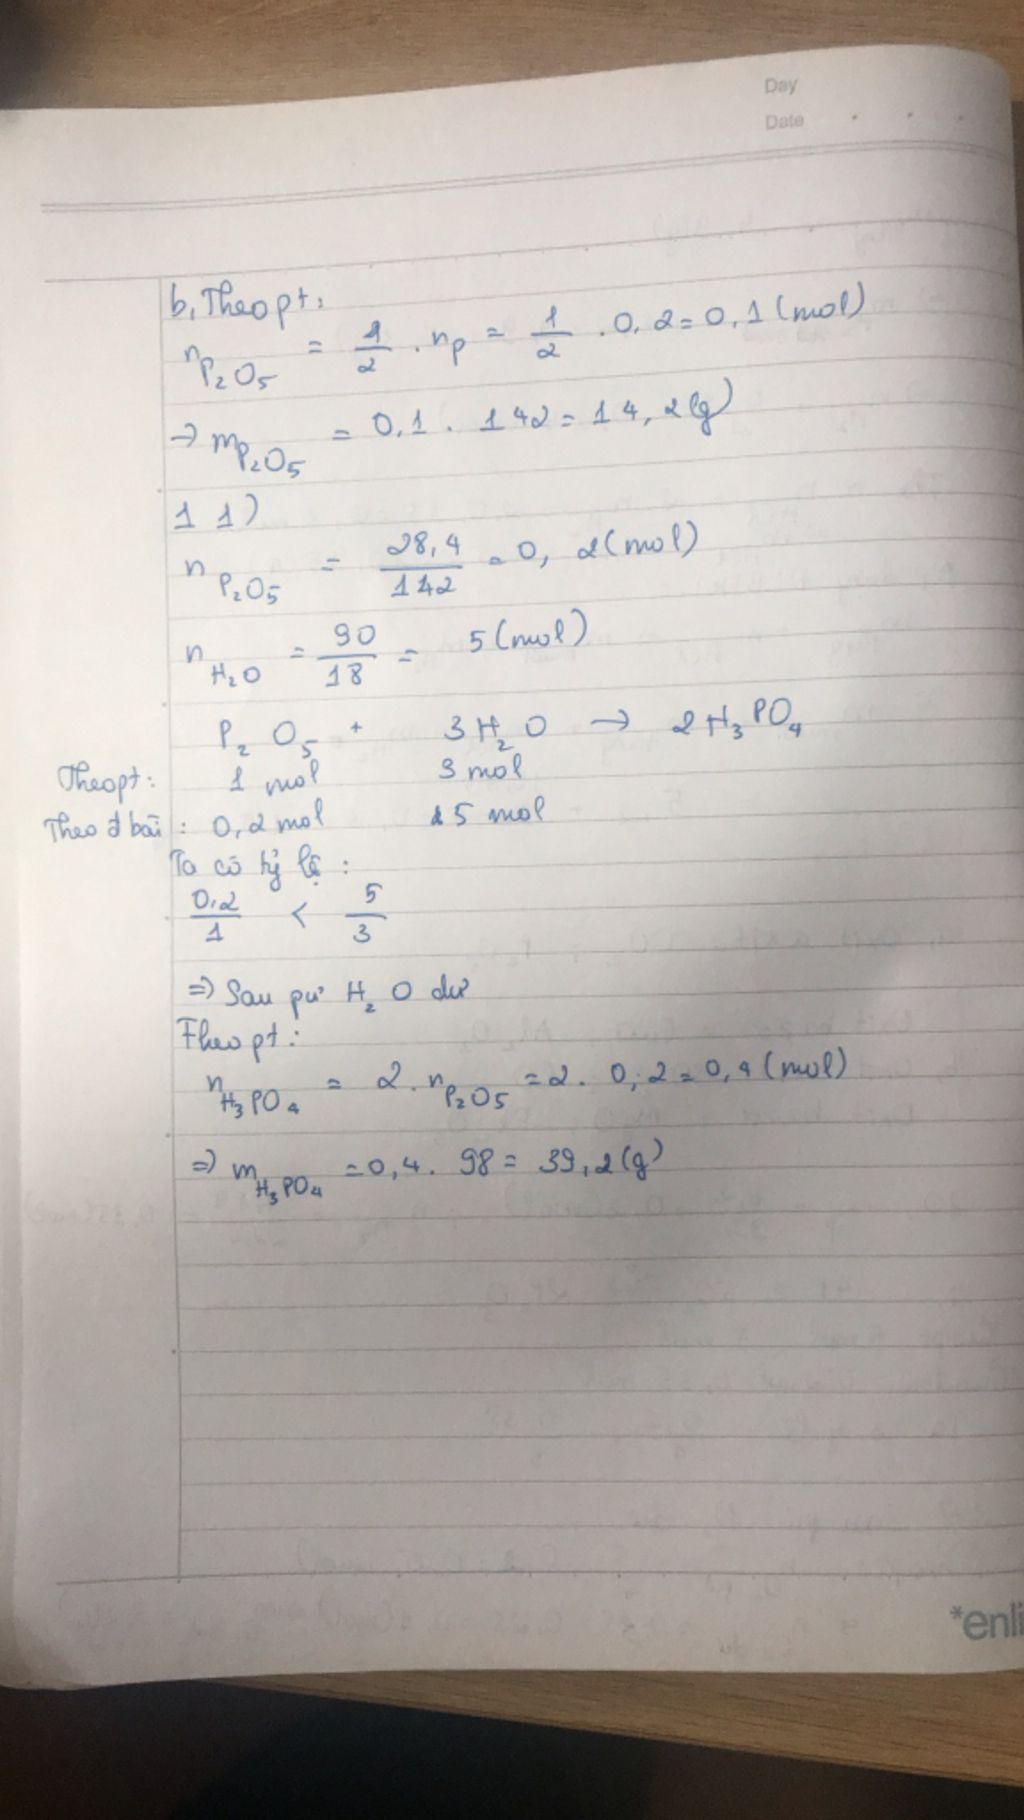 Day
Date
b, Theo pt:
n P₂O₅ = 1/2 . nP = 1/2 . 0,2 = 0,1 (mol)
→ m P₂O₅ = 0,1 . 142 = 14,2 (g)
11)
n P₂O₅ = 28,4/142 = 0,2 (mol)
n H₂O = 90/18 = 5 (mol)
P₂O₅ + 3H₂O → 2H₃PO₄
Theo pt: 1 mol 3 mol
Theo đ bài: 0,2 mol 5 mol
Ta có tỷ lệ:
0,2/1 < 5/3
⇒ Sau pư H₂O dư
Theo pt:
n H₃PO₄ = 2. n P₂O₅ = 2. 0,2 = 0,4 (mol)
⇒ m H₃PO₄ = 0,4. 98 = 39,2 (g)
*enli